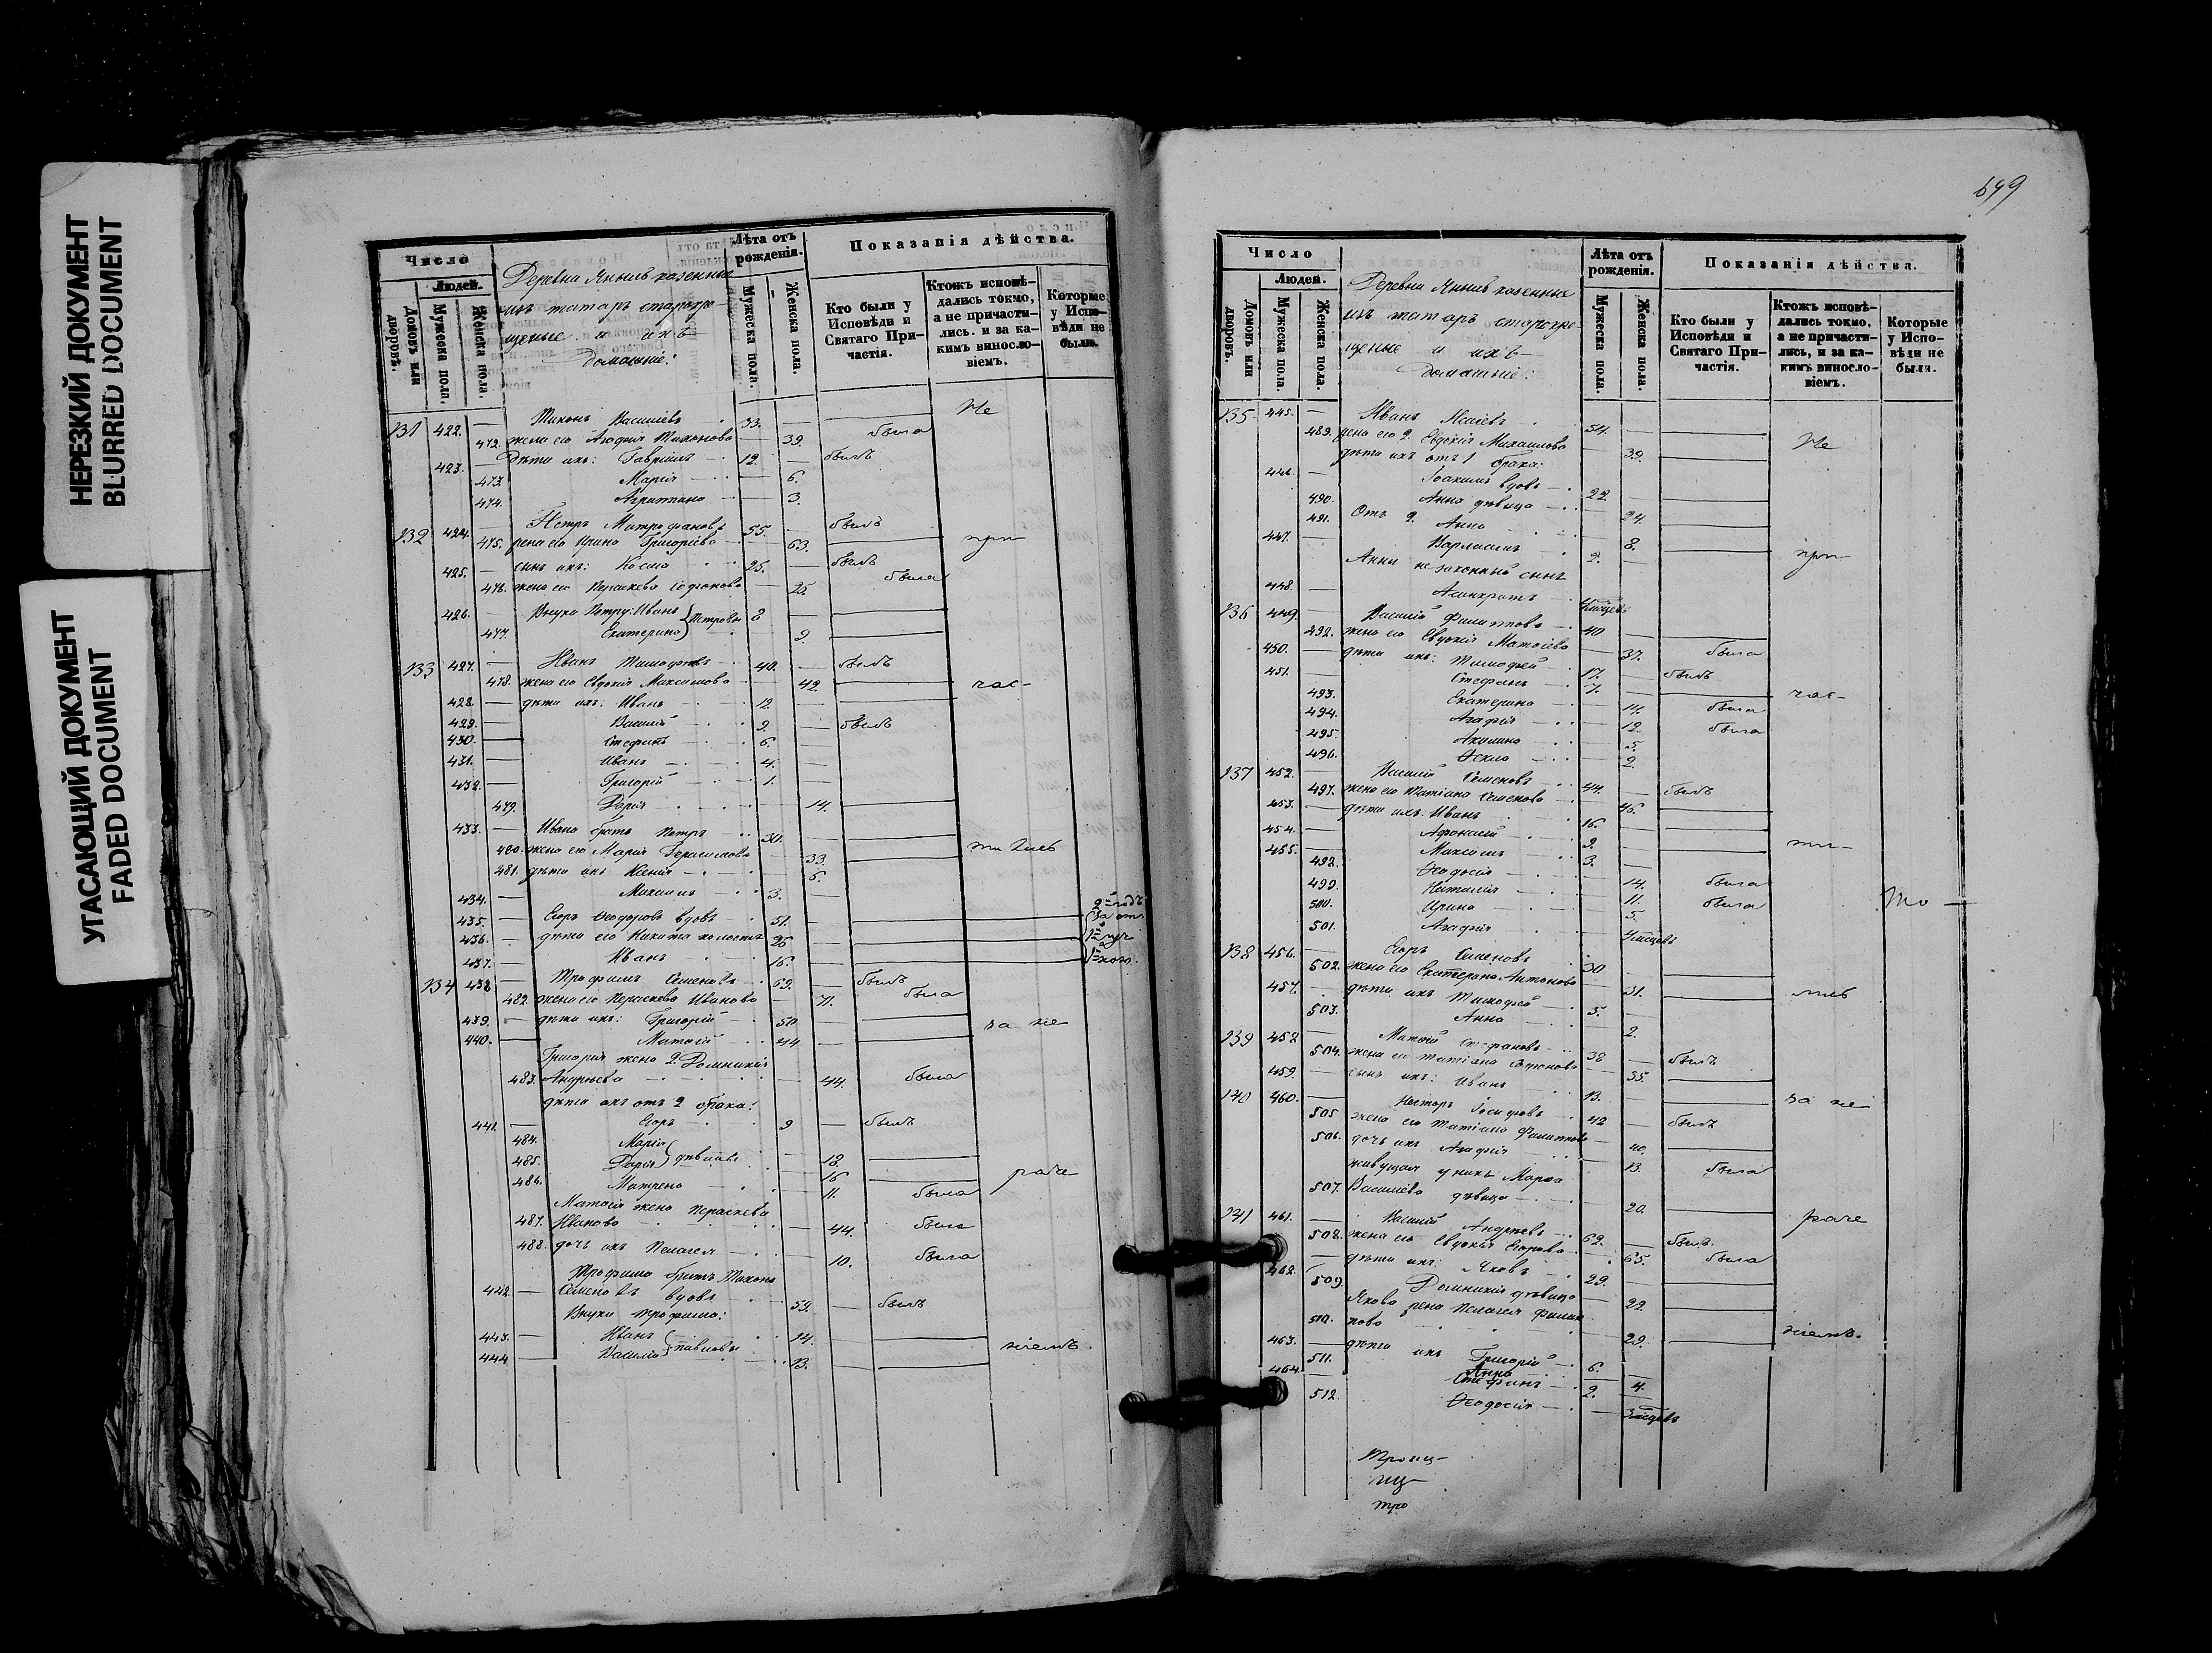 НЕРЕЗКИЙ ДОКУМЕНТ
BLURRED DOCUMENT
УГАСАЮЩИЙ ДОКУМЕНТ
FADED DOCUMENT
Число
Людей.
Домовъ или дворовъ.
Мужеска пола.
Женска пола.
Деревни Янылъ казенные
изъ татаръ старокре-
щеные и ихъ
домашніе:
Лѣта отъ рожденія.
Мужеска пола.
Женска пола.
Показанія дѣйства.
Кто были у Исповѣди и Святаго Причастія.
Ктожъ исповѣ-
дались токмо,
а не причасти-
лись. и за ка-
кимъ виносло-
віемъ.
Которые
у Испо-
вѣди не
были.
131 422. — Тихонъ Василіевъ 33. — Не
472. жена его Агафія Тихонова — 39. была
423. — Дѣти ихъ: Гавріилъ 12. — былъ
473. Марія — 6.
474. Агрипина — 3.
132 424. — Петръ Митрофановъ 55. — былъ
475. жена его Ирина Григоріева — 63. при-
425. — сынъ ихъ: Косма 25. — былъ
476. жена его Параскева Софронова — 25 была
426. — Внуки Петру: Иванъ } Петровы 8 —
477. Екатерина — 9.
133 427. — Иванъ Тимофеевъ 40. — былъ
478. жена его Евдокія Максимова — 42. час-
428. — дѣти ихъ: Иванъ 12 —
429. — Василій 9. — былъ
430. — Стефанъ 6. —
431. — Иванъ 4. —
432. — Григорій 1.
479. Дарія — 14.
433. — Ивана братъ Петръ 30.
480. жена его Марія Герасимова — 33. ти лись
481. дѣти ихъ Ксенія — 6.
434. — Михаилъ 3. —
435. — Егоръ Феодоровъ вдовъ 51. —
436. — дѣти его Никита холостъ 26 —
437. — Иванъ 16. —
134 438 — Трофимъ Семеновъ 69. — былъ
482. жена его Параскева Иванова — 71. была
439. — дѣти ихъ: Григорій 50 — за не
440. — Матѳій 44 —
Григорія жена 2 Домникія
483. Андреева — 44. была
дѣти ихъ отъ 2 брака:
441. — Егоръ 9 — былъ
484. Марія } дѣвицы 18.
485. Дарія 16
486. Матрена — 11. была раче
Матѳія жена Параскева
487. Иванова — 44. была
488. дочь ихъ Пелагея — 10. была
Трофима братъ Тихонъ
442 — Семеновъ вдовъ 59. — былъ
Внуки Трофима:
443. — Иванъ } Павловы 14. ніемъ.
444 — Василій 13.
649
Число
Людей.
Домовъ или дворовъ.
Мужеска пола.
Женска пола.
Деревни Янылъ казенные
изъ татаръ старокре-
щеные и ихъ
домашніе:
Лѣта отъ рожденія.
Мужеска пола.
Женска пола.
Показанія дѣйства.
Кто были у Исповѣди и Святаго Причастія.
Ктожъ исповѣ-
дались токмо,
а не причасти-
лись, и за ка-
кимъ виносло-
віемъ.
Которые
у Испо-
вѣди не
были.
135 445. — Иванъ Исаіевъ 54. —
489. жена его 2. Евдокія Михаилова — 39. Не
дѣти ихъ отъ 1 брака:
446. — Іоакимъ вдовъ 22 —
490. Анна дѣвица — 24.
491. Отъ 2. Анна — 8.
447. — Варлаамъ 2. — при-
Анны незаконный сынъ
448. — Асинкритъ
136 449. — Василій Филиповъ 40 —
492. жена его Евдокія Матѳіева — 37. была
450. — дѣти ихъ: Тимофей 17. — былъ
451. — Стефанъ 7. — час-
493. Екатерина — 14. была
494. Агафія — 12. была
495. Акилина — 5.
496. Фекла — 2.
137 452. — Василій Семеновъ 44. — былъ
497. жена его Татіана Семенова — 45.
453. — дѣти ихъ: Иванъ 16. —
454. — Афонасій 9. — ти-
455. — Максимъ 3. —
492. Феодосія — 14. была
499. Наталія — 11. была
500. Ирина — 5. То —
501. Агафія
138 456. — Егоръ Семеновъ 30 —
502. жена его Екатерина Антонова — 31. лись
457. — дѣти ихъ Тимофей 5.
503. Анна — 2.
139 458 — Матѳій Стефановъ 38 — былъ
504. жена его Татіана Софронова — 35.
459. — сынъ ихъ: Иванъ 13. — за не
140 460. — Несторъ Іосифовъ 42 — былъ
505 жена его Татіана Филипова — 40.
506. дочь ихъ Агафія — 13. была
живущая у нихъ Марѳа
507. Василіева дѣвица — 20. раче
141 461. — Василій Андреевъ 62. — былъ
508. жена его Евдокія Егорова — 65. была
462. — дѣти ихъ: Яковъ 29. —
509 Домникія дѣвица — 22.
Якова жена Пелагея Филип-
510. пова — 29. ніемъ.
463. — дѣти ихъ Григорій 6. —
511. Анна — 4.
464. — Стефанъ 2.
512. Феодосія
Троиц-